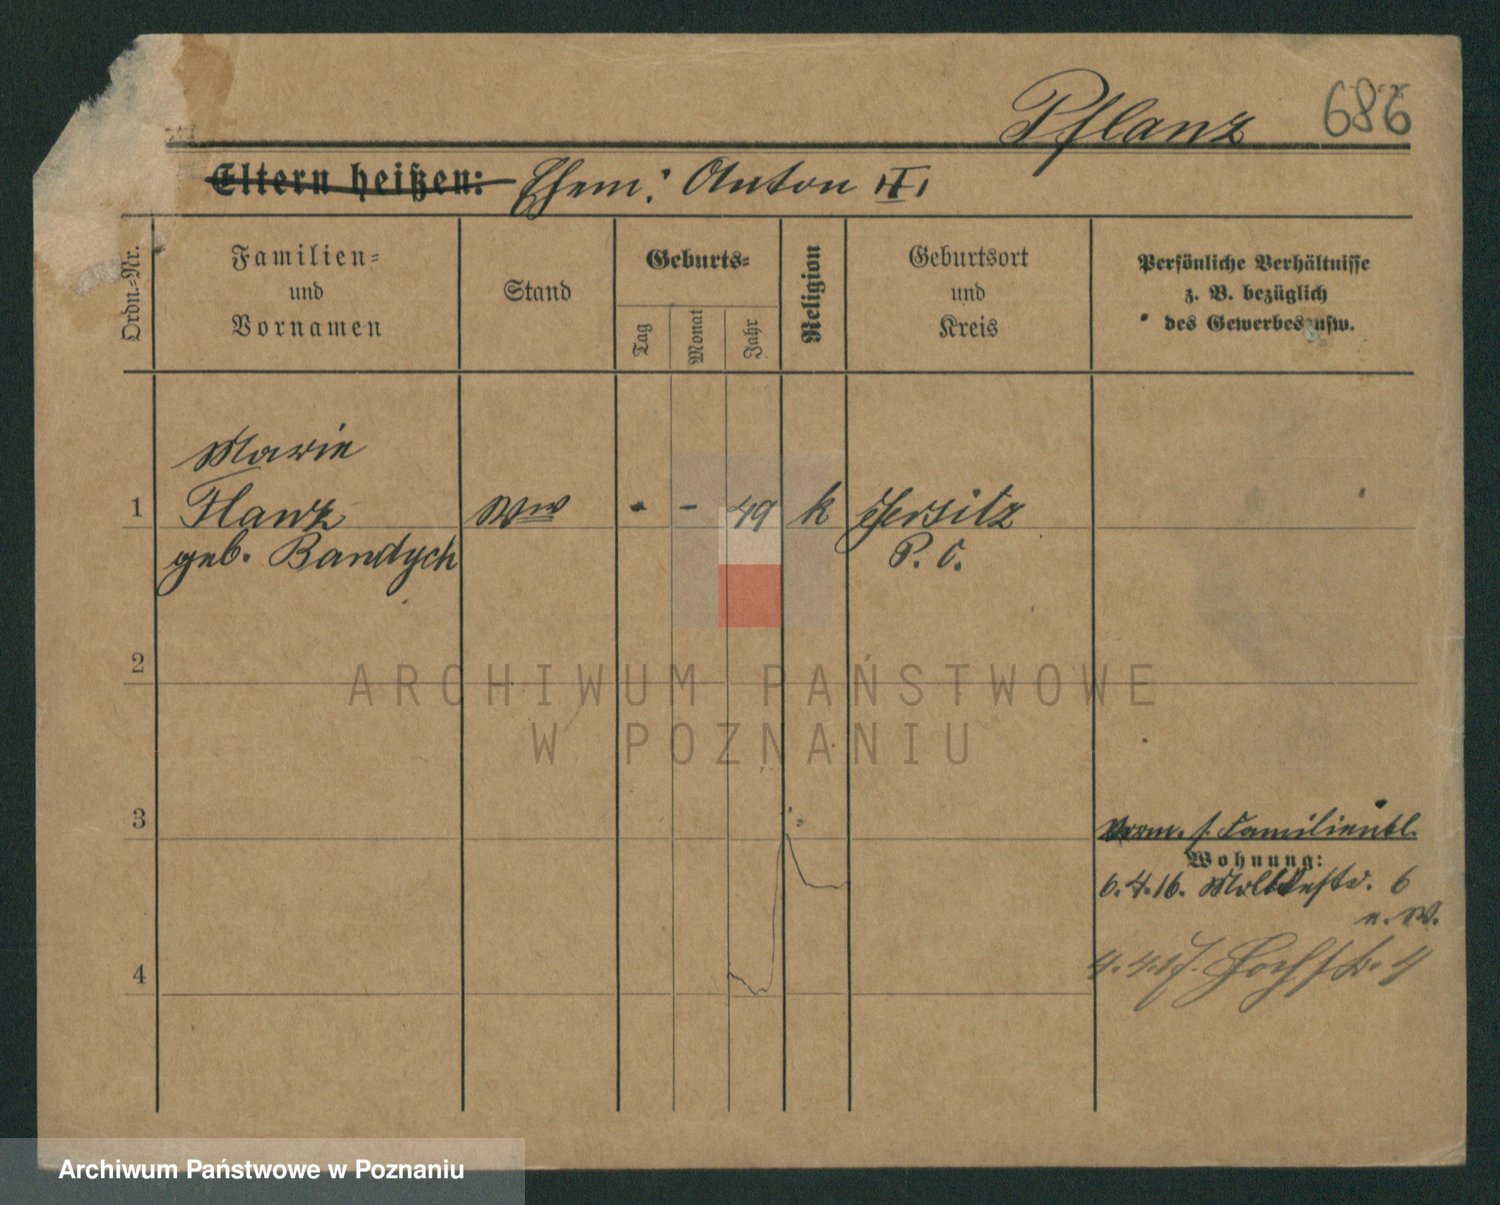 Pflanz 686
Eltern heißen: Ehem: Anton III
Ordn.-Nr.
Familien-
und
Vornamen
Stand
Geburts-
Tag
Monat
Jahr
Religion
Geburtsort
und
Kreis
Persönliche Verhältnisse
z. B. bezüglich
des Gewerbes usw.
Marie
1 Flanz Ww - - 49 k Jersitz
geb. Bandych P. O.
2
3
Verm. s. Familienbl.
Wohnung:
6.4.16. Moltkestr. 6
n. W.
4
4.4.17. Hochstr. 4
ARCHIWUM PAŃSTWOWE
W POZNANIU
Archiwum Państwowe w Poznaniu